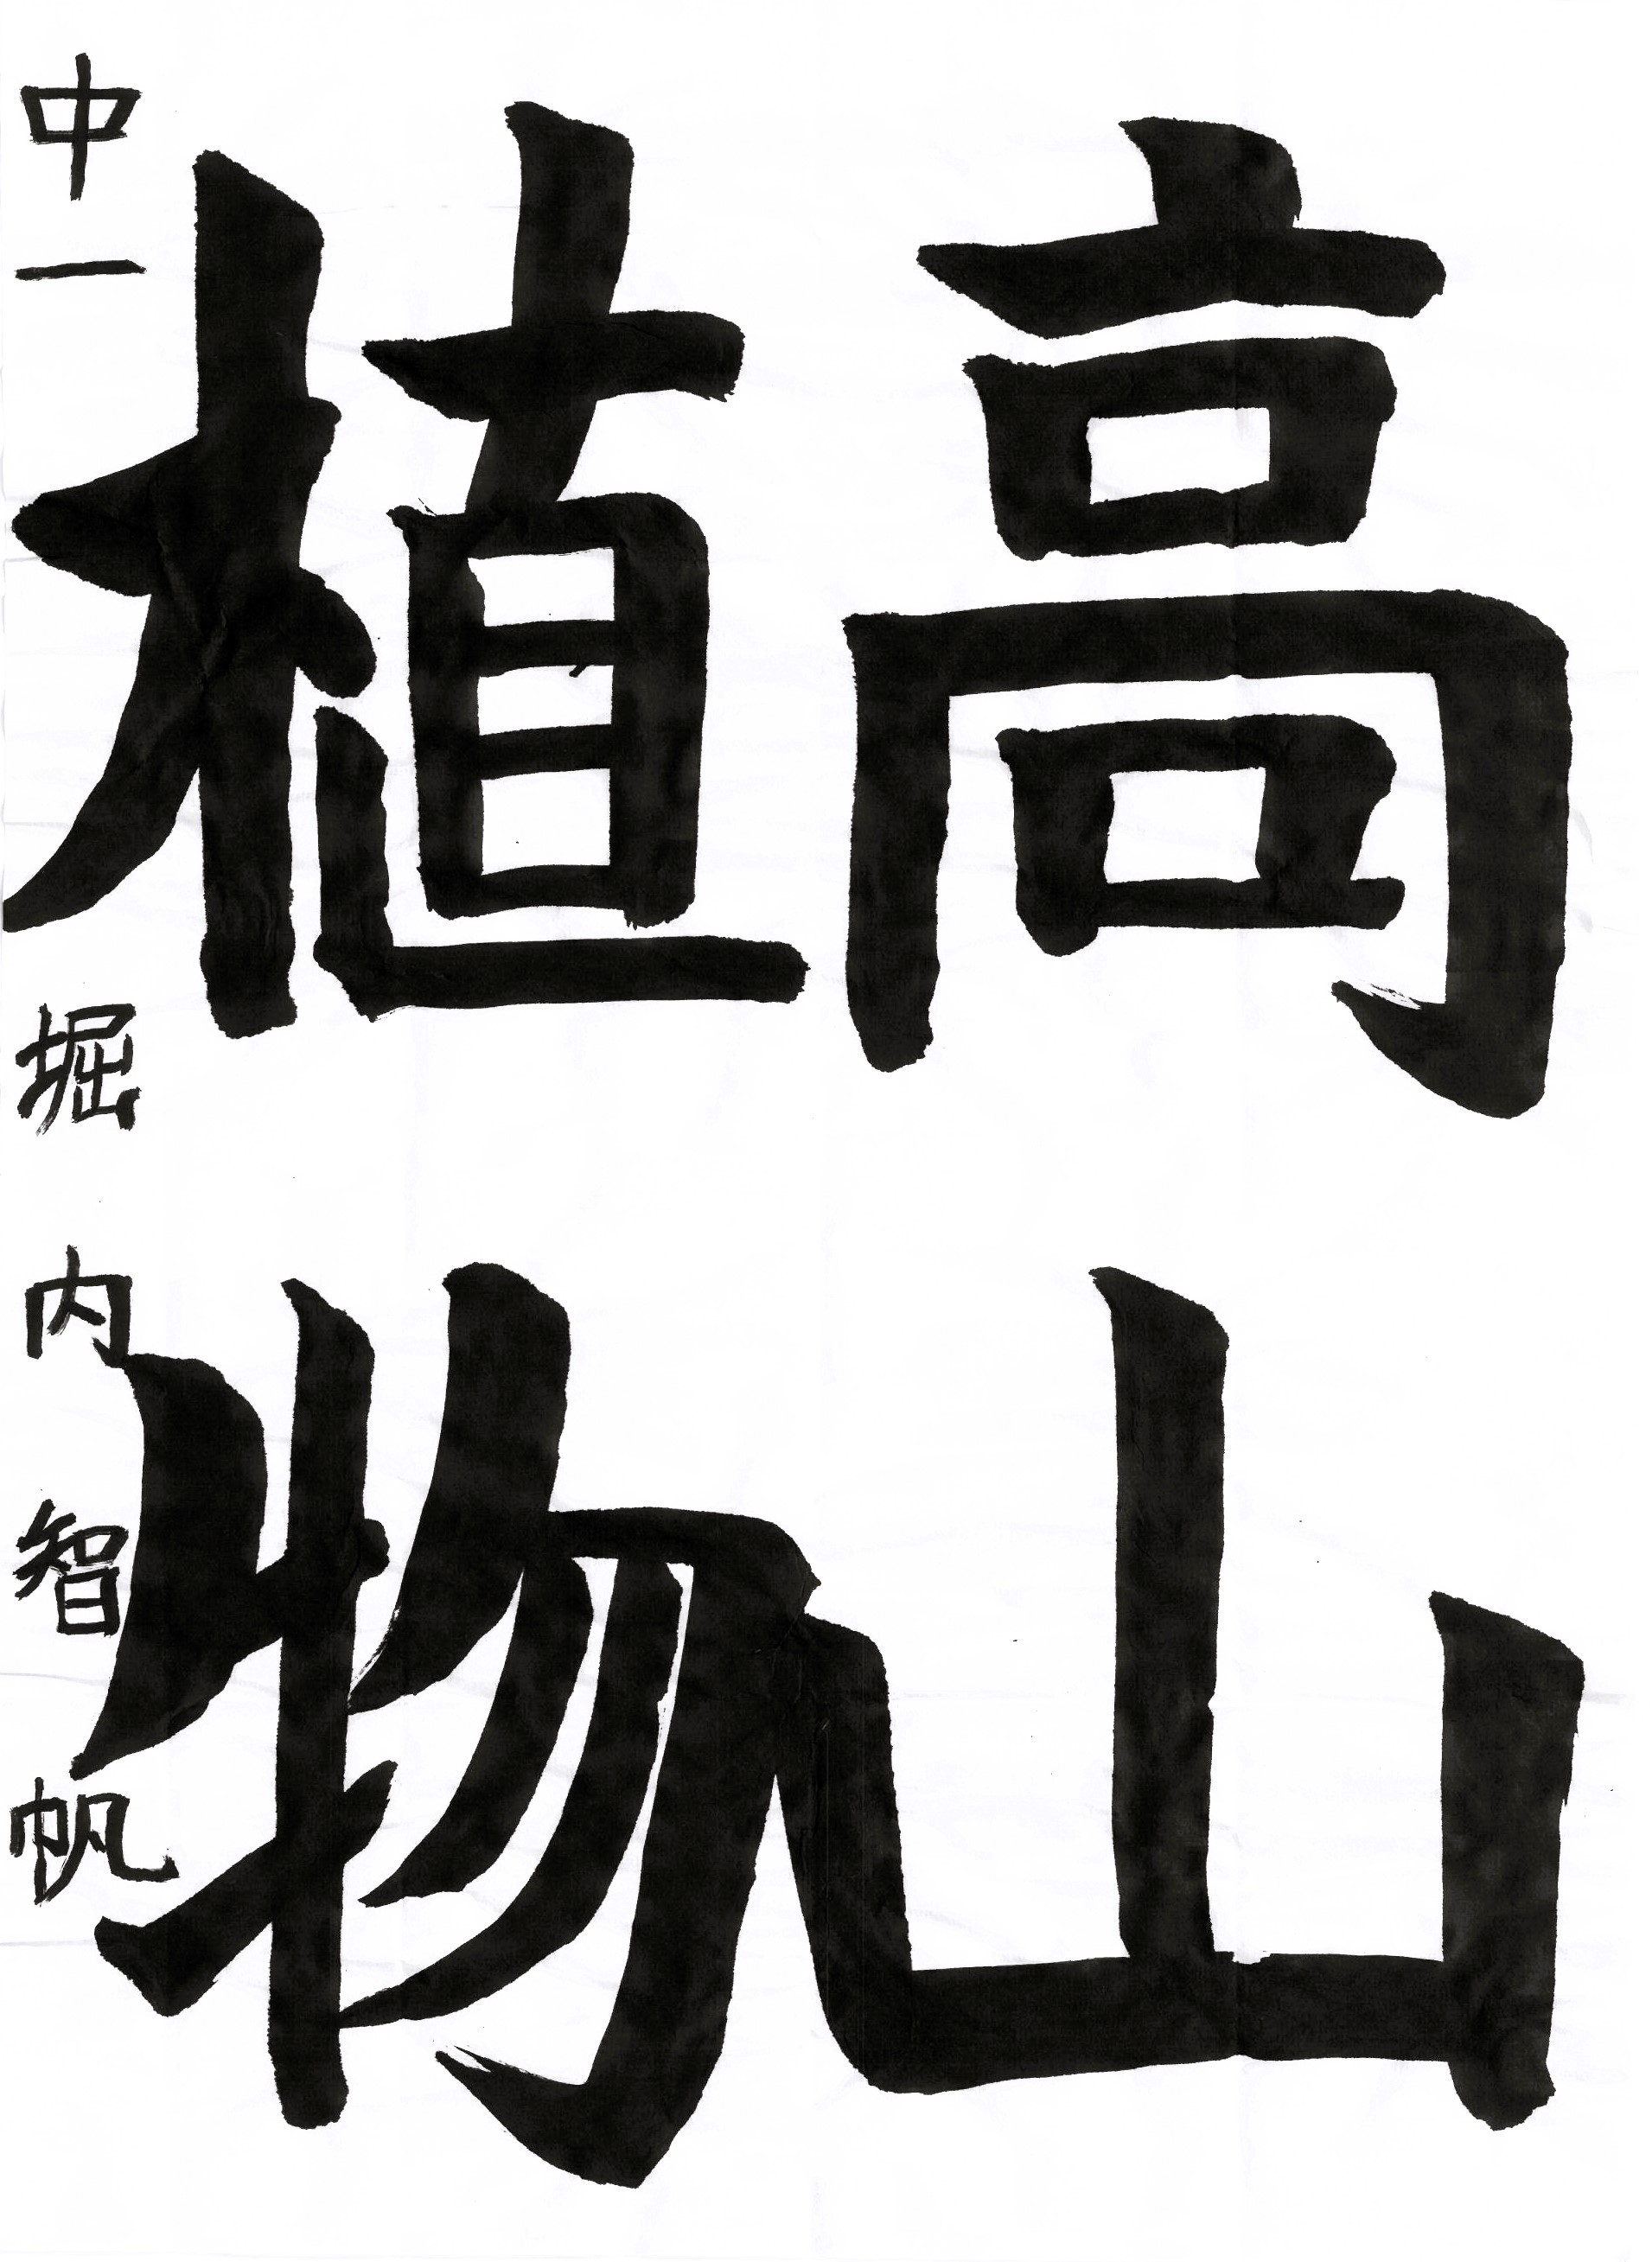 高山
植物
中一 堀内智帆